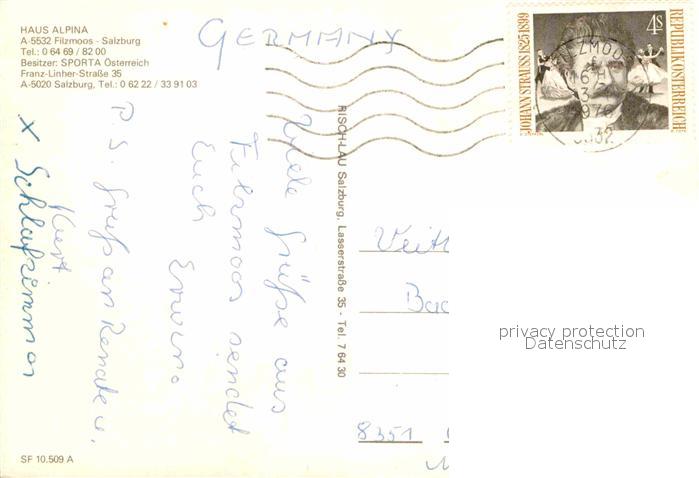 HAUS ALPINA
A-5532 Filzmoos - Salzburg
Tel.: 0 64 69 / 82 00
Besitzer: SPORTA Österreich
Franz-Linher-Straße 35
A-5020 Salzburg, Tel.: 0 62 22 / 33 91 03
GERMANY
4s
REPUBLIK ÖSTERREICH
JOHANN STRAUSS 1825-1899
Viele Grüße aus
Filzmoos sendet
Euch
Erwin.
P.S. Gruß an Renate u.
Kurt
X Schlafzimmer
RISCH-LAU Salzburg, Lasserstraße 35 - Tel. 7 64 30
Veitl
Bac
8351
privacy protection
Datenschutz
SF 10.509 A